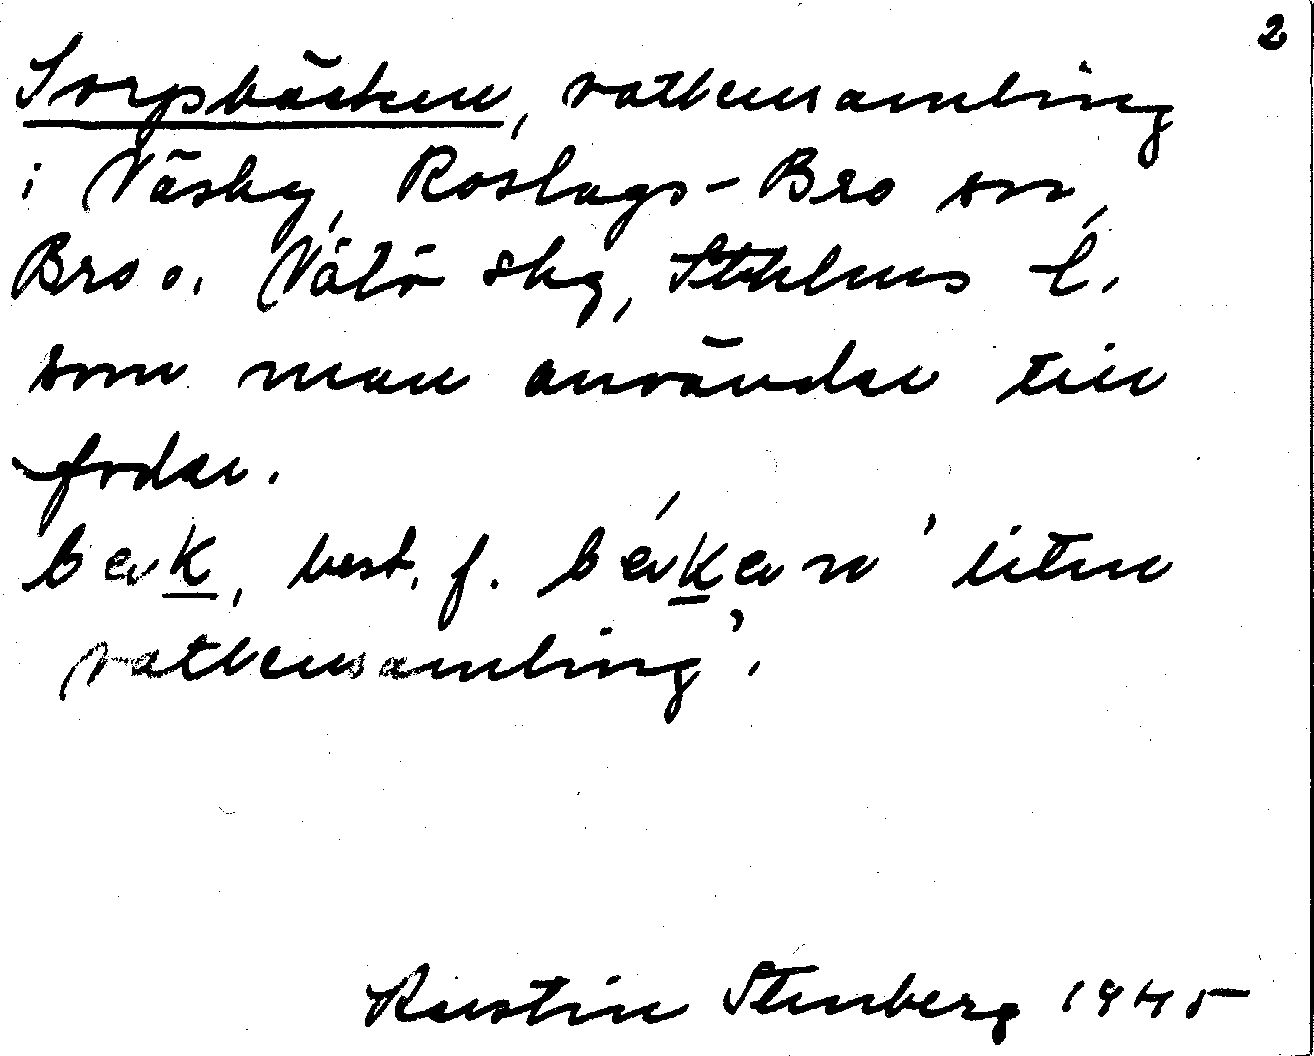 2
Sorpbäcken, vattensamling
i Väsby, Roslags-Bro sn,
Bro o. Vätö skg, Sthlms l.
som man använder till
foder.
bäk, best. f. bäkän 'liten
vattensamling'.
Kerstin Stenberg 1945